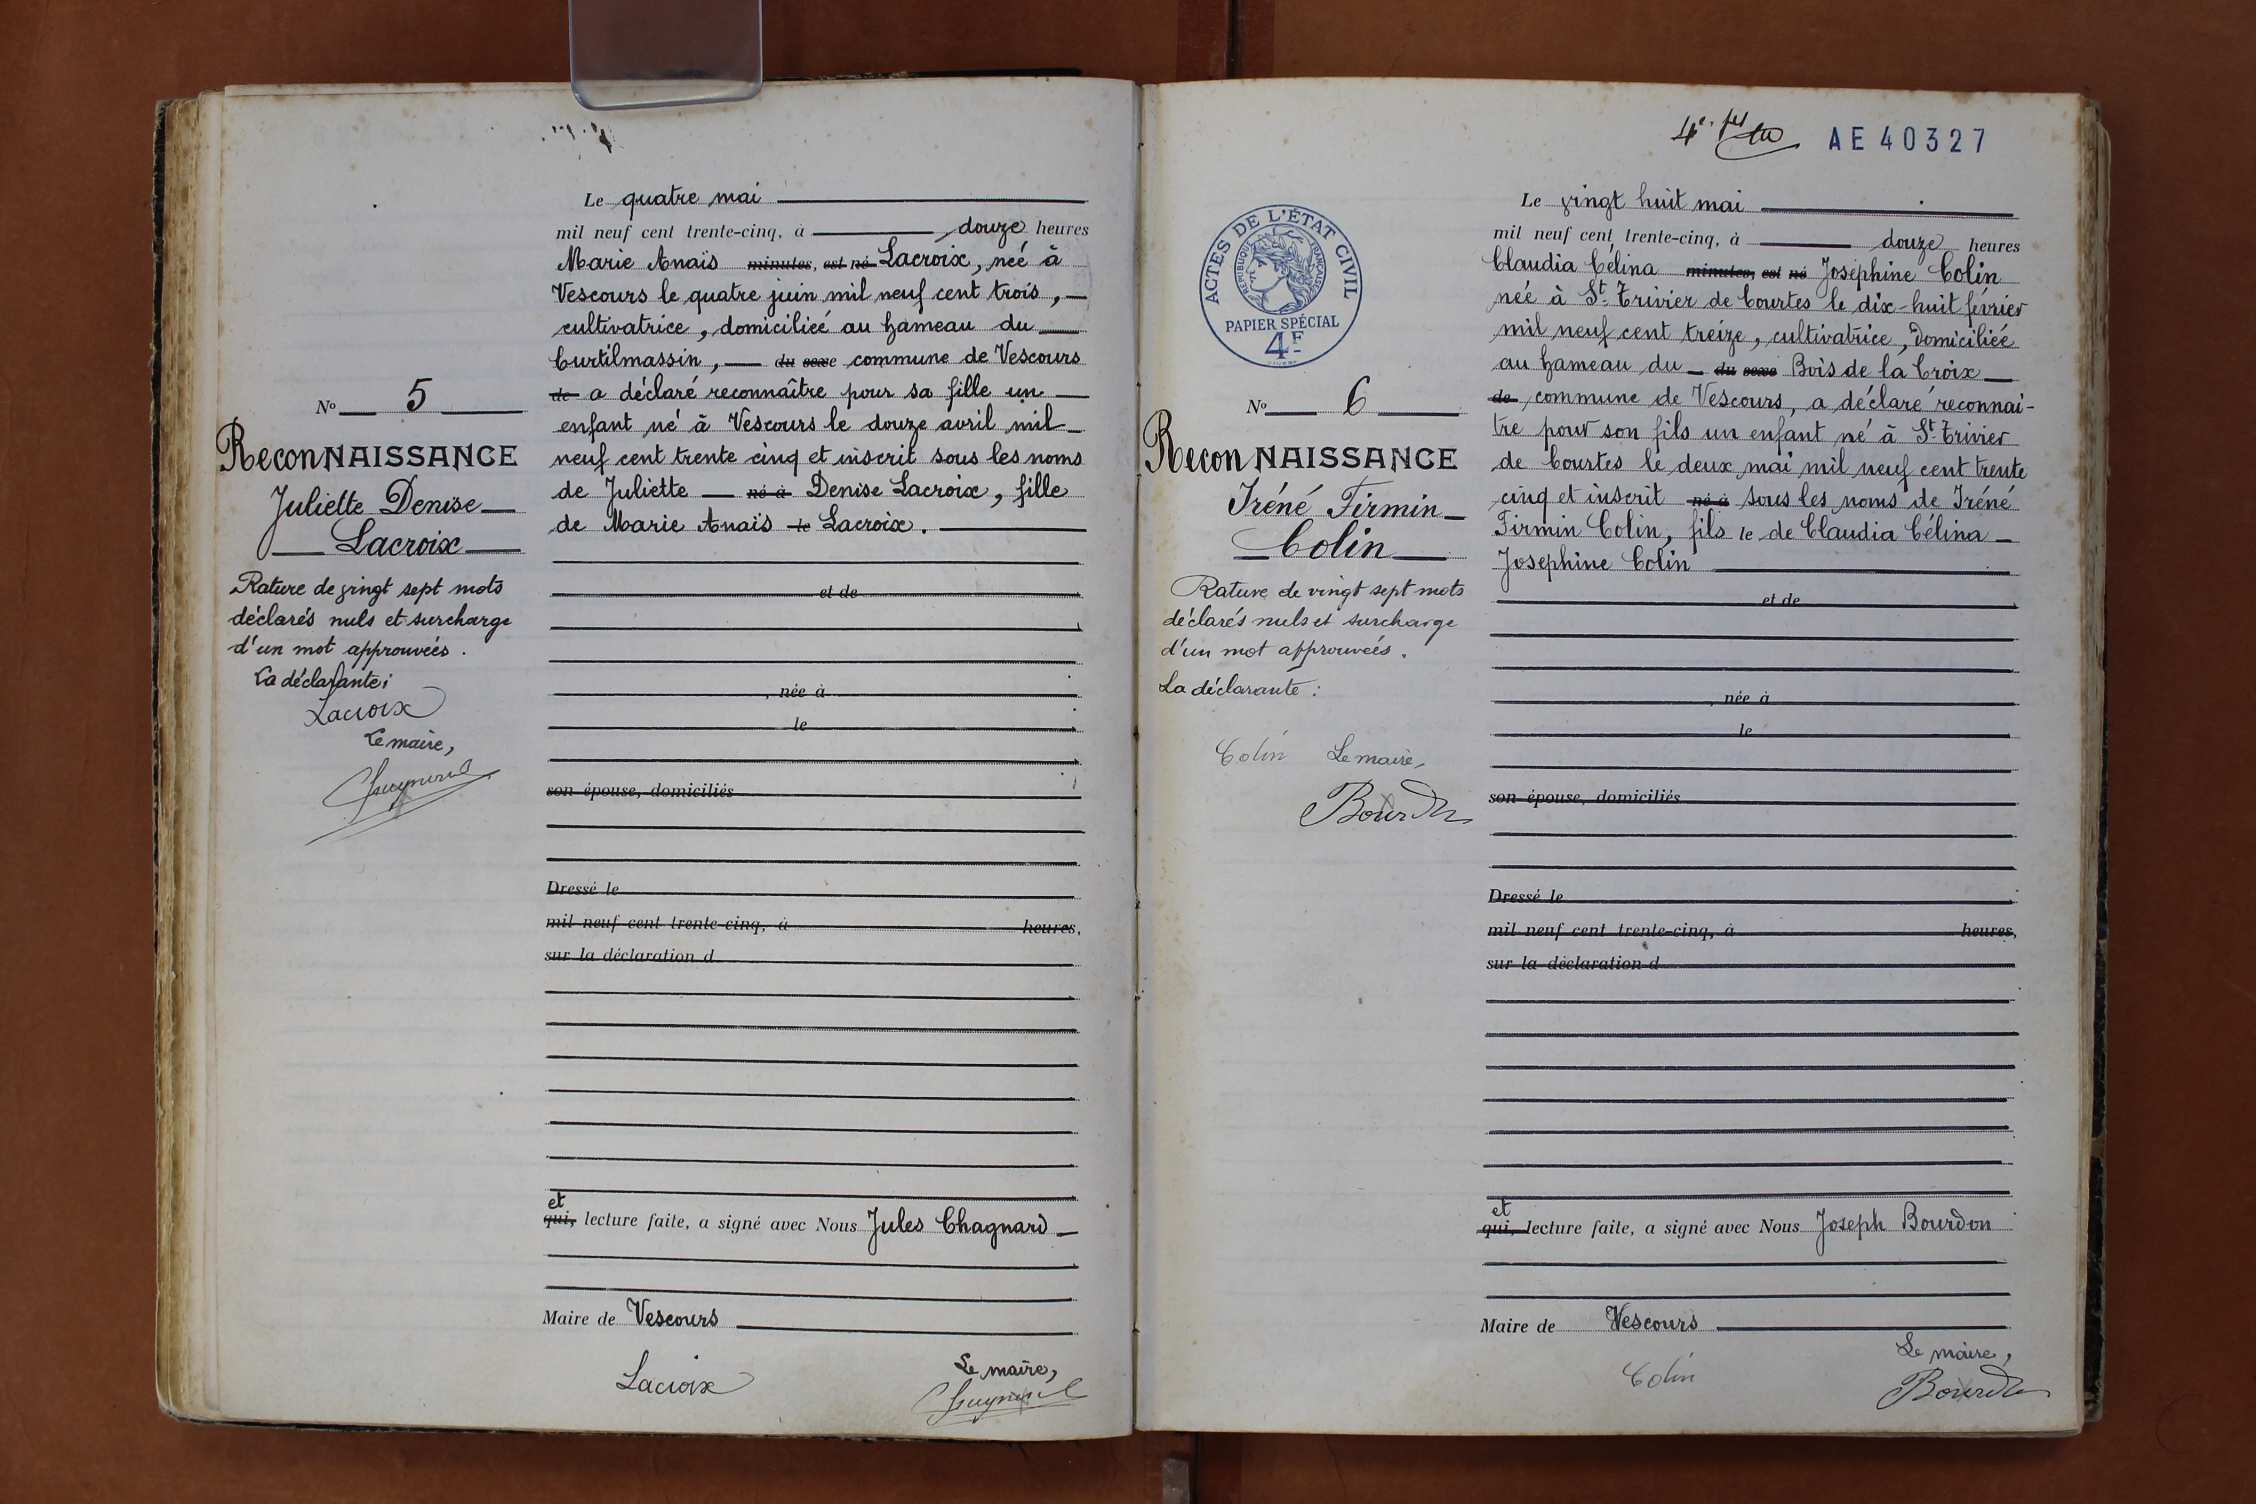 Le quatre mai
mil neuf cent trente-cinq, à douze heures
Marie Anaïs minutes, est né Lacroix, née à
Vescours le quatre juin mil neuf cent trois,
cultivatrice, domiciliée au hameau du
Curtilmassin, du sexe commune de Vescours
de a déclaré reconnaître pour sa fille un
enfant né à Vescours le douze avril mil
neuf cent trente cinq et inscrit sous les noms
de Juliette né à Denise Lacroix, fille
de Marie Anaïs le Lacroix.
et de
, née à
le
son épouse, domiciliés
Dressé le
mil neuf cent trente-cinq, à heures,
sur la déclaration d
et
qui, lecture faite, a signé avec Nous Jules Chagnard
Maire de Vescours
Lacroix
Le maire,
No 5
ReconNAISSANCE
Juliette Denise
Lacroix
Rature de vingt sept mots
déclarés nuls et surcharge
d'un mot approuvées.
La déclarante:
Lacroix
Le maire,
AE 40327
ACTES DE L'ÉTAT CIVIL
RÉPUBLIQUE FRANÇAISE
PAPIER SPÉCIAL
4F
No 6
ReconNAISSANCE
Iréné Firmin
Colin
Rature de vingt sept mots
déclarés nuls et surcharge
d'un mot approuvées.
La déclarante:
Colin Le maire,
Bourdon
Le vingt huit mai
mil neuf cent trente-cinq, à douze heures
Claudia Célina minutes, est né Joséphine Colin
née à St Trivier de Courtes le dix-huit février
mil neuf cent treize, cultivatrice, domiciliée
au hameau du du sexe Bois de la Croix
de commune de Vescours, a déclaré reconnai-
tre pour son fils un enfant né à St Trivier
de Courtes le deux mai mil neuf cent trente
cinq et inscrit né à sous les noms de Iréné
Firmin Colin, fils le de Claudia Célina
Josephine Colin
et de
, née à
le
son épouse, domiciliés
Dressé le
mil neuf cent trente-cinq, à heures,
sur la déclaration d
et
qui, lecture faite, a signé avec Nous Joseph Bourdon
Maire de Vescours
Le maire,
Colin
Bourdon